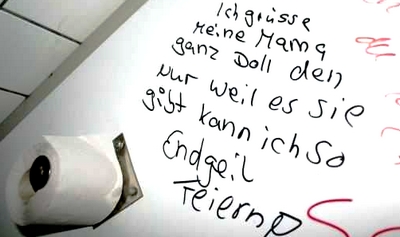 Ich grüsse
meine Mama
ganz Doll den
nur weil es sie
gibt kann ich so
Endgeil
Feiern